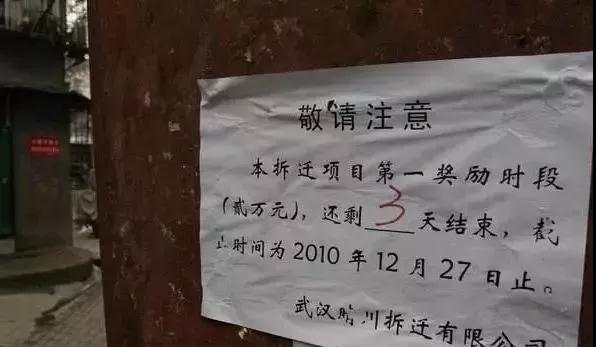 敬请注意
本拆迁项目第一奖励时段
(贰万元)，还剩3天结束，截
止时间为2010年12月27日止。
武汉晴川拆迁有限公司